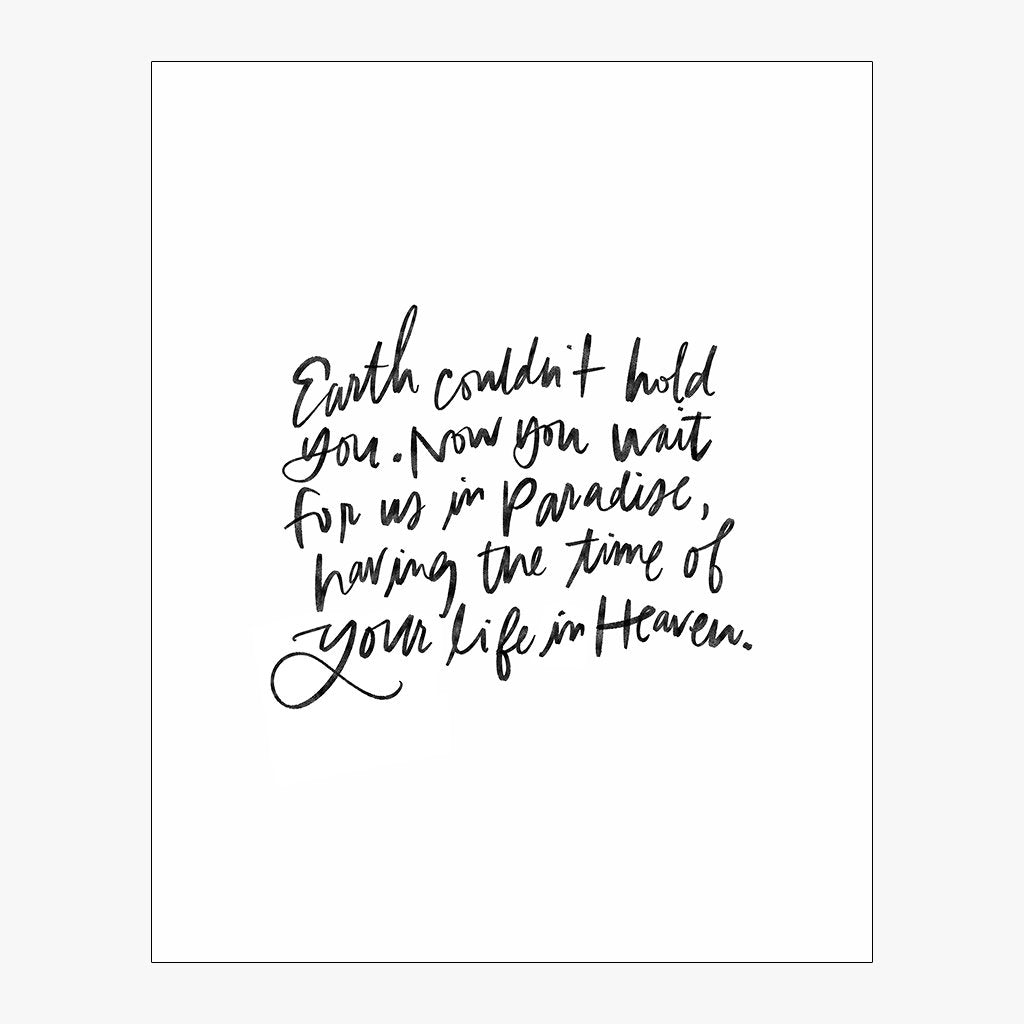 Earth couldn't hold
you. Now you wait
for us in Paradise,
having the time of
your life in Heaven.